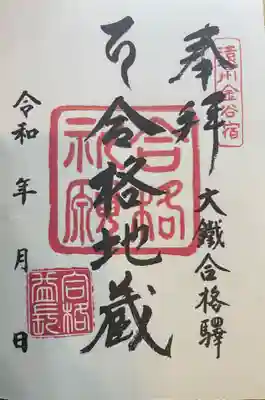 遠州金谷宿
奉拝
大鐵合格驛
合格地蔵
合格
祈願
令和 年 月 日
合格